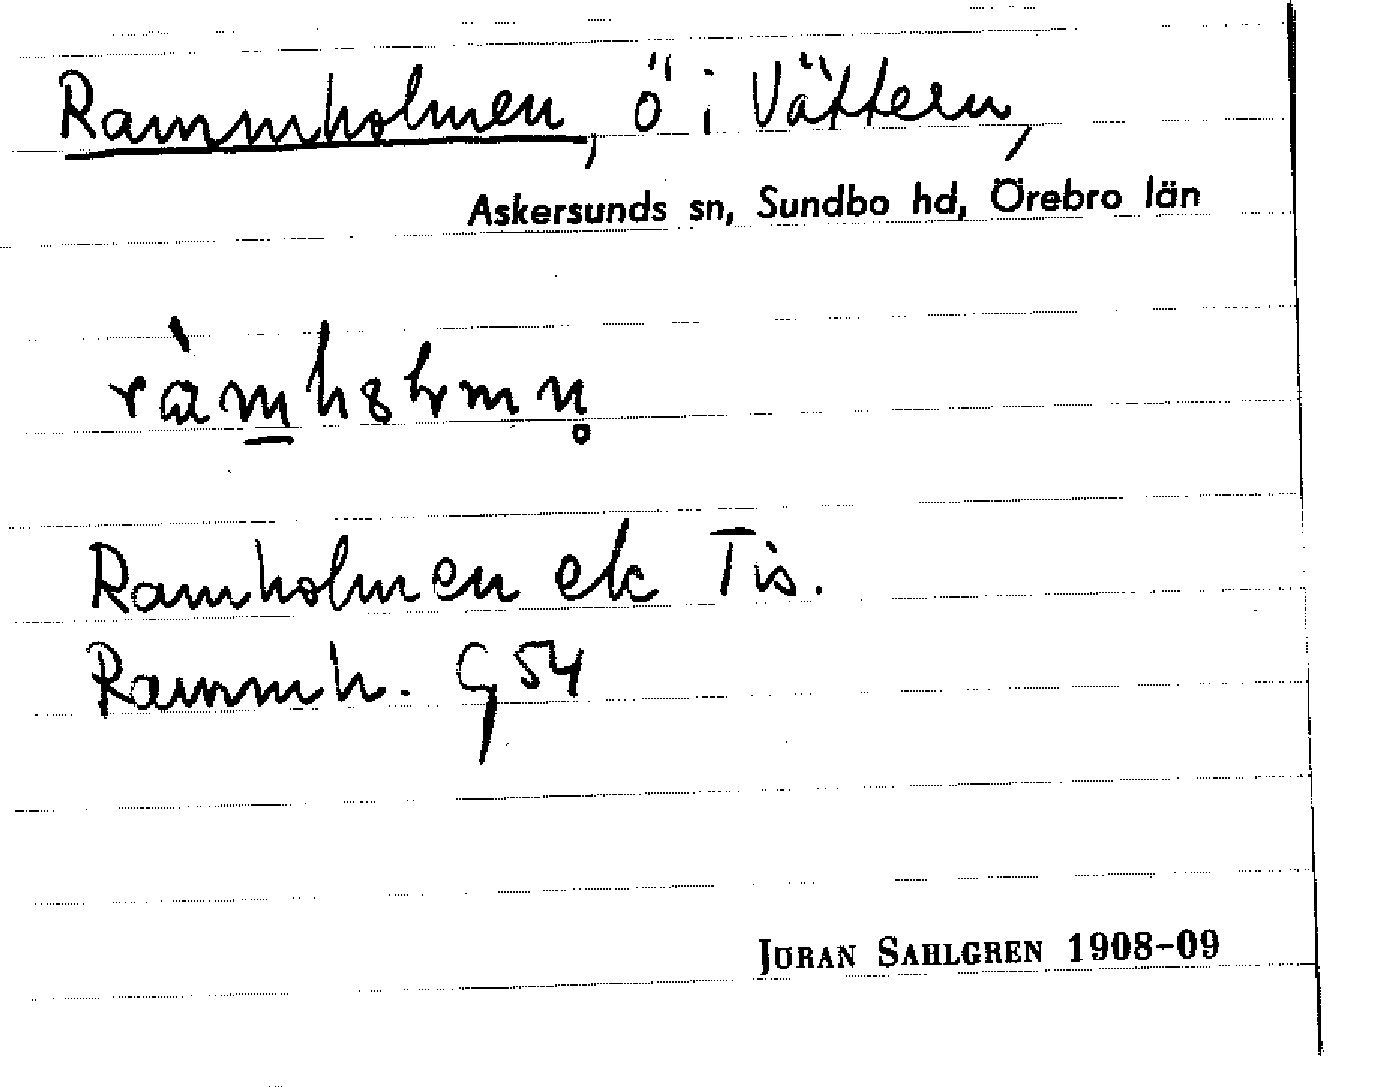 Rammholmen, ö i Vättern,
Askersunds sn, Sundbo hd, Örebro län
Ramholmen ek Tis.
Rammh. G 54
JÖRAN SAHLGREN 1908-09